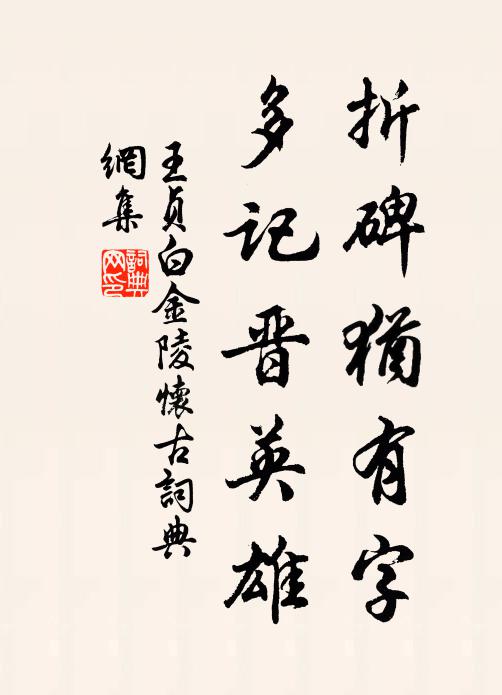 折碑猶有字
多記晋英雄
王貞白金陵懷古詞典
網集
詞典
网印